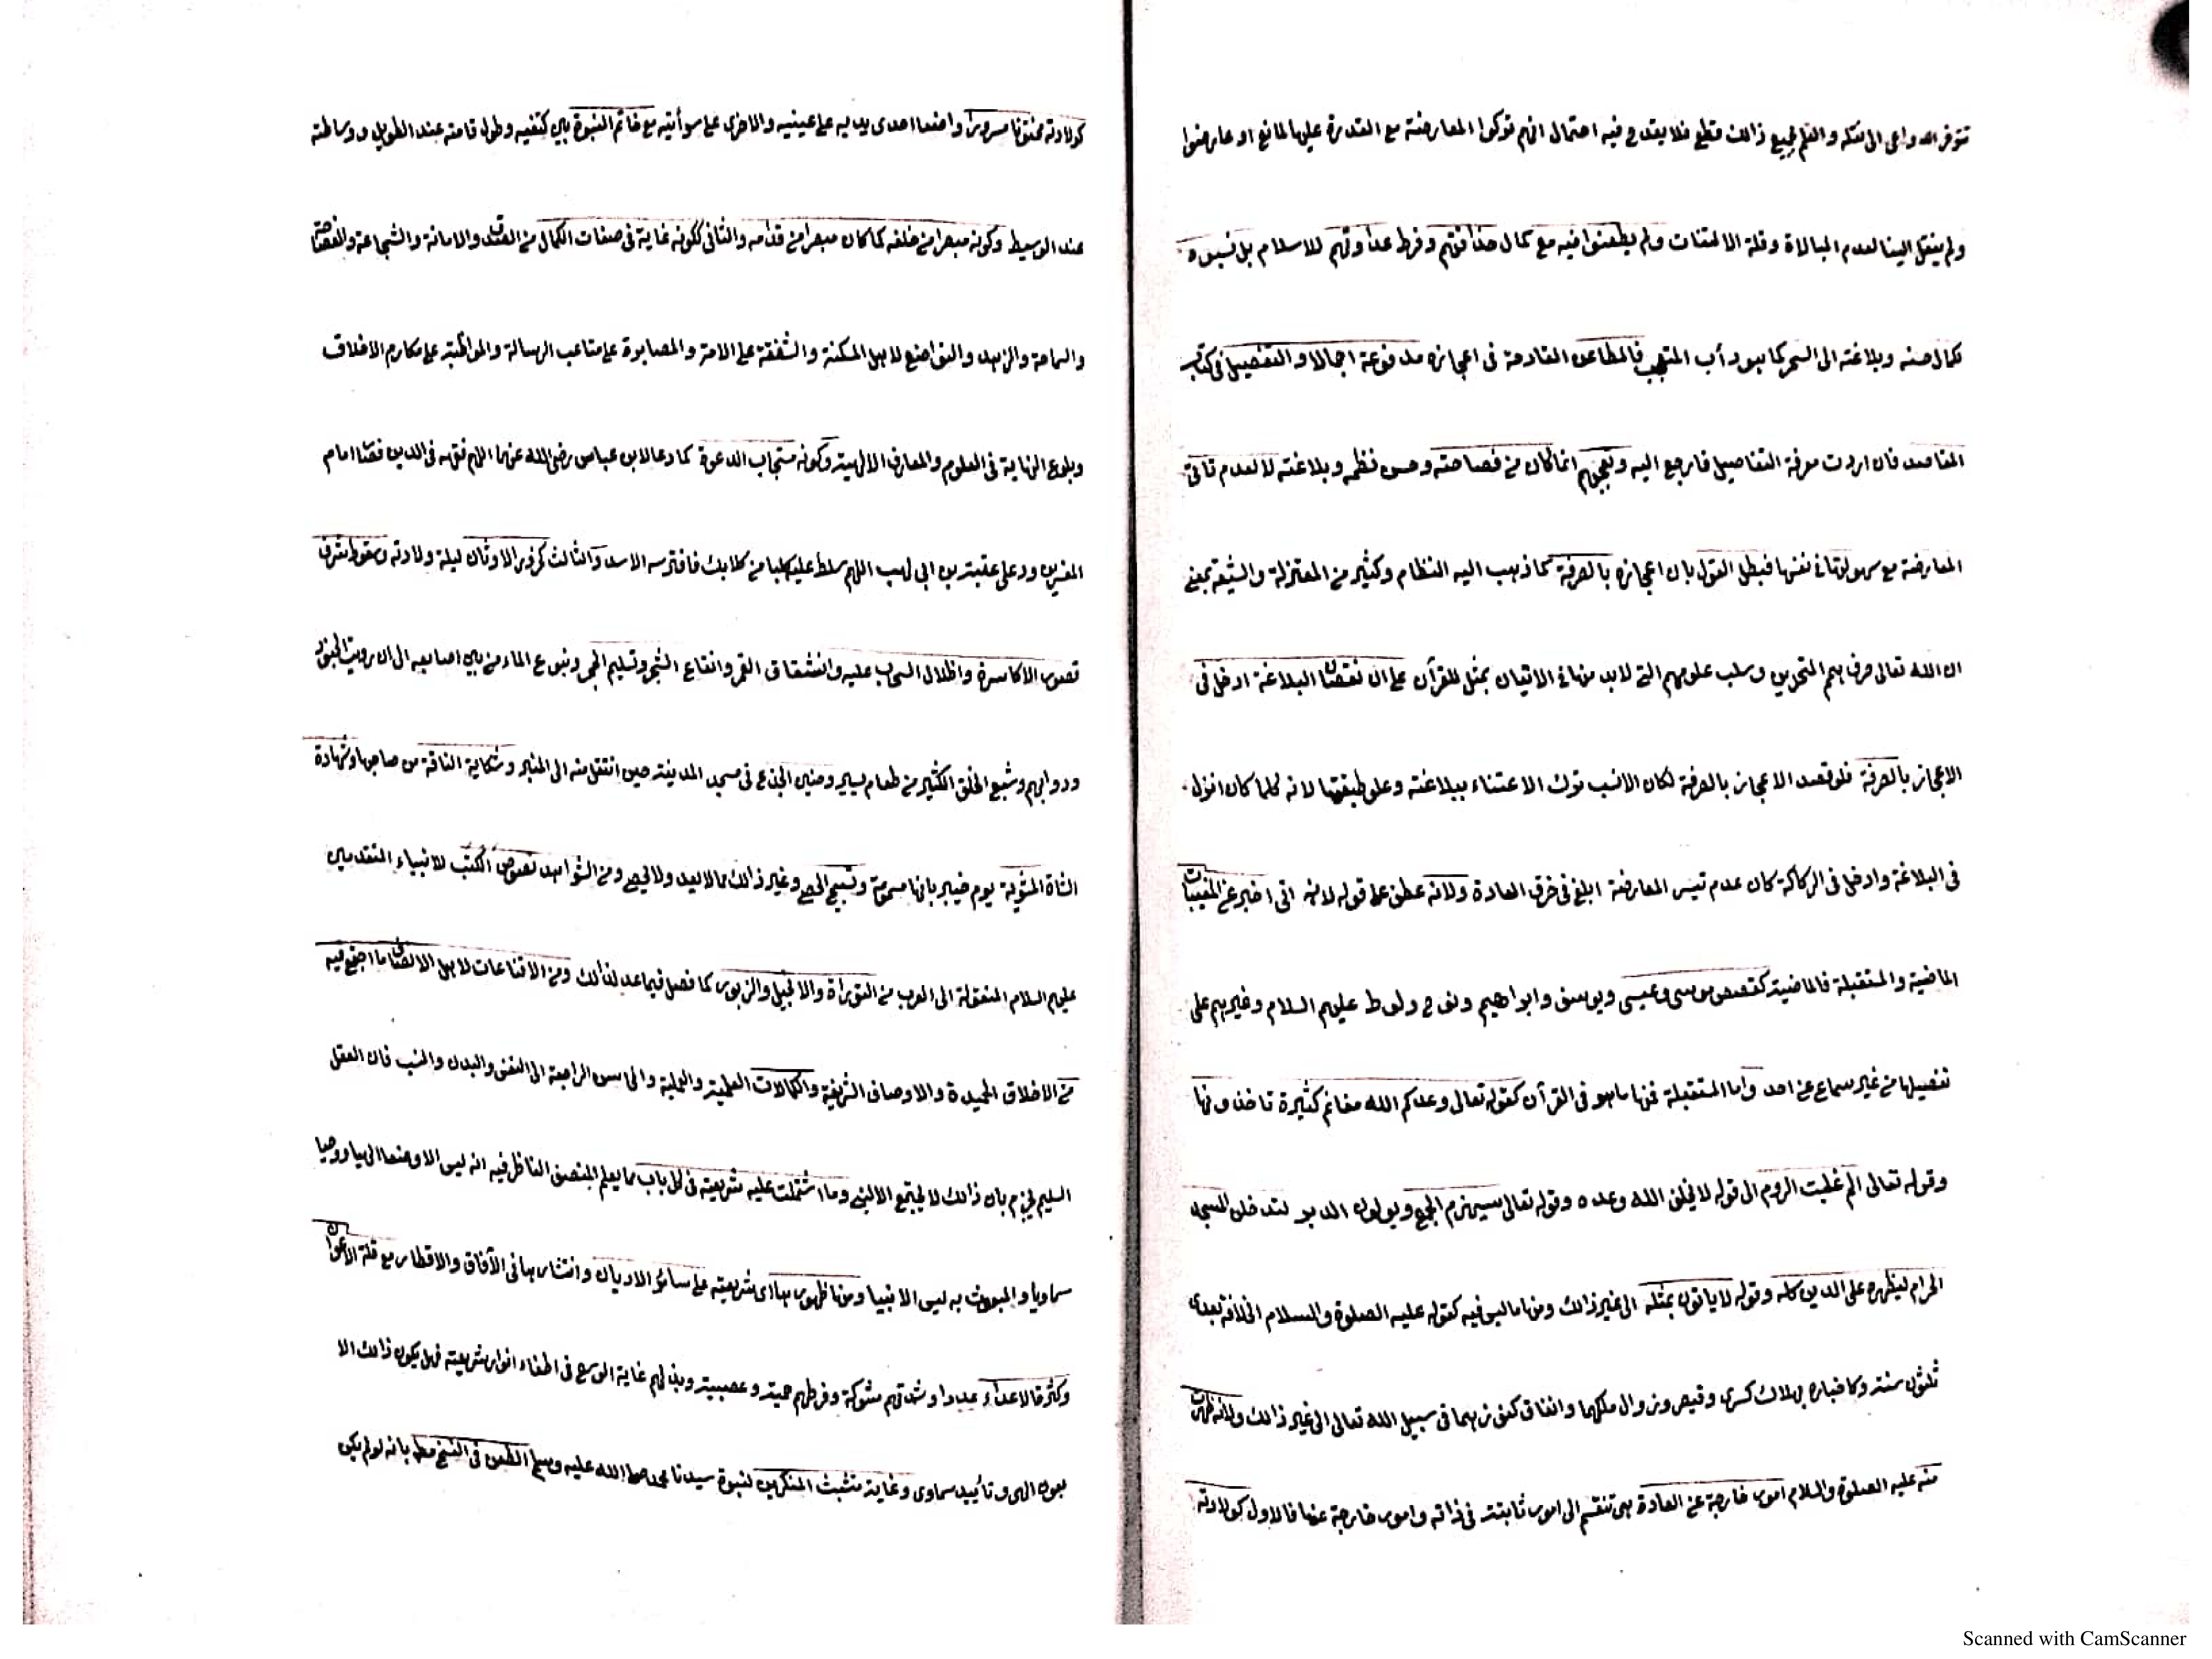 تتوفر الدواعى الى نقله والعلم بجميع ذالك قطع فلا يقدح فيه احتمال انهم تركوا المعارضة مع القدرة عليها لمانع او عارضوا
ولم ينقل الينا لعدم المبالاة وقلة الالتفات ولم يطعنوا فيه مع كمال حذاقتهم وفرط عداوتهم للاسلام بل نسبوه
لكمال حسنه وبلاغته الى السحر كما هو دأب المتعجب فالمطاعن القادحة فى اعجازه مدفوعة اجمالا والتفصيل فى كتاب
المقاصد فان اردت معرفة التفاصيل فارجع اليه وتعجبهم انما كان من فصاحته وحسن نظمه وبلاغته لا لعدم تاتى
المعارضة مع سهولتها فى نفسها فبطل القول بان اعجازه بالصرفة كما ذهب اليه النظام وكثير من المعتزلة والشيعة بمعنى
ان الله تعالى صرف همم المتحدين وسلب علومهم التى لابد منها فى الاتيان بمثل القرآن على ان نقصان البلاغة ادخل فى
الاعجاز بالصرفة فلو قصد الاعجاز بالصرفة لكان الانسب ترك الاعتناء ببلاغته وعلو طبقتها لانه كلما كان انزل
فى البلاغة وادخل فى الركاكة كان عدم تيسر المعارضة ابلغ فى خرق العادة ولانه عطف على قوله لانه اتى اخبر عن المغيبات
الماضية والمستقبلة فالماضية كقصص موسى وعيسى ويوسف وابراهيم ونوح ولوط عليهم السلام وغيرهم على
تفصيلها من غير سماع عن احد واما المستقبلة فمنها ما هو فى القرآن كقوله تعالى وعدكم الله مغانم كثيرة تاخذونها
وقوله تعالى الم غلبت الروم الى قوله لا يخلف الله وعده وقوله تعالى سيهزم الجمع ويولون الدبر لتدخلن المسجد
الحرام ليظهره على الدين كله وقوله لا ياتون بمثله الى غير ذالك ومنها ما ليس فيه كقوله عليه الصلوة والسلام الخلافة بعدى
ثلثون سنة وكاخباره بهلاك كسرى وقيصر وزوال ملكهما وانفاق كنوزهما فى سبيل الله تعالى الى غير ذالك ولانه ظهرت
منه عليه الصلوة والسلام امور خارجة عن العادة هى تنقسم الى امور ثابتة فى ذاته وامور خارجة عنها فالاول كولادته
كولادته مختونا مسرورا واضعا احدى يديه على عينيه والاخرى على سوأتيه مع خاتم النبوة بين كتفيه وطول قامته عند الطويل ووساطته
عند الوسيط وكونه مبصرا من خلفه كما كان مبصرا من قدامه والثانى ككونه غاية فى صفات الكمال من الصدق والامانة والشجاعة والفصاحة
والسماحة والزهد والتواضع لاهل المسكنة والشفقة على الامة والمصابرة على متاعب الرسالة والمواظبة على مكارم الاخلاق
وبلوغ النهاية فى العلوم والمعارف الالهية وكونه مستجاب الدعوة كما دعا لابن عباس رضى الله عنهما اللهم فقهه فى الدين فصار امام
المفسرين ودعى على عتبة بن ابى لهب اللهم سلط عليه كلبا من كلابك فافترسه الاسد والثالث كخرور الاوثان ليلة ولادته وسقوط شرف
قصور الاكاسرة واظلال السحاب عليه وانشقاق القمر وانقلاع الشجر وتسليم الحجر ونبوع الماء من بين اصابعه الى ان رويت الجنود
ودوابهم وشبع الخلق الكثير من طعام يسير وحنين الجذع فى مسجد المدينة حين انتقل منه الى المنبر وشكاية الناقة من صاحبها وشهادة
الشاة المشوية يوم خيبر بانها مسمومة وتسبيح الحصى وغير ذالك مما لا يعد ولا يحصى ومن الشواهد نصوص الكتب للانبياء المتقدمين
عليهم السلام المنقولة الى العرب من التوراة والانجيل والزبور كما فصل فيما عد لذالك ومن الاقناعات لاهل الانصاف ما اجتمع فيه
من الاخلاق الحميدة والاوصاف الشريفة والكمالات العلمية والعملية والمحاسن الراجعة الى النفس والبدن والنسب فان العقل
السليم يجزم بان ذالك لا يجتمع الا لنبى وما اشتملت عليه شريعته فى كل باب مما يعلم المنصف الناظر فيه انه ليس الا وضعا الهيا ووحيا
سماويا والمبعوث به ليس الا نبيا ومنها ظهورها اى شريعته على سائر الاديان وانتشارها فى الآفاق والاقطار مع قلة الاعوان
وكثرة الاعداء عددا وشدتهم شوكة وفرطهم حمية وعصبية وبذلهم غاية الوسع فى اطفاء انوار شريعته فهل يكون ذالك الا
بعون الهى وتأييد سماوى وغاية متشبث المنكرين لنبوة سيدنا محمد صلى الله عليه وسلم الطعن فى النسخ مطـ بانه لو لم يكن
Scanned with CamScanner